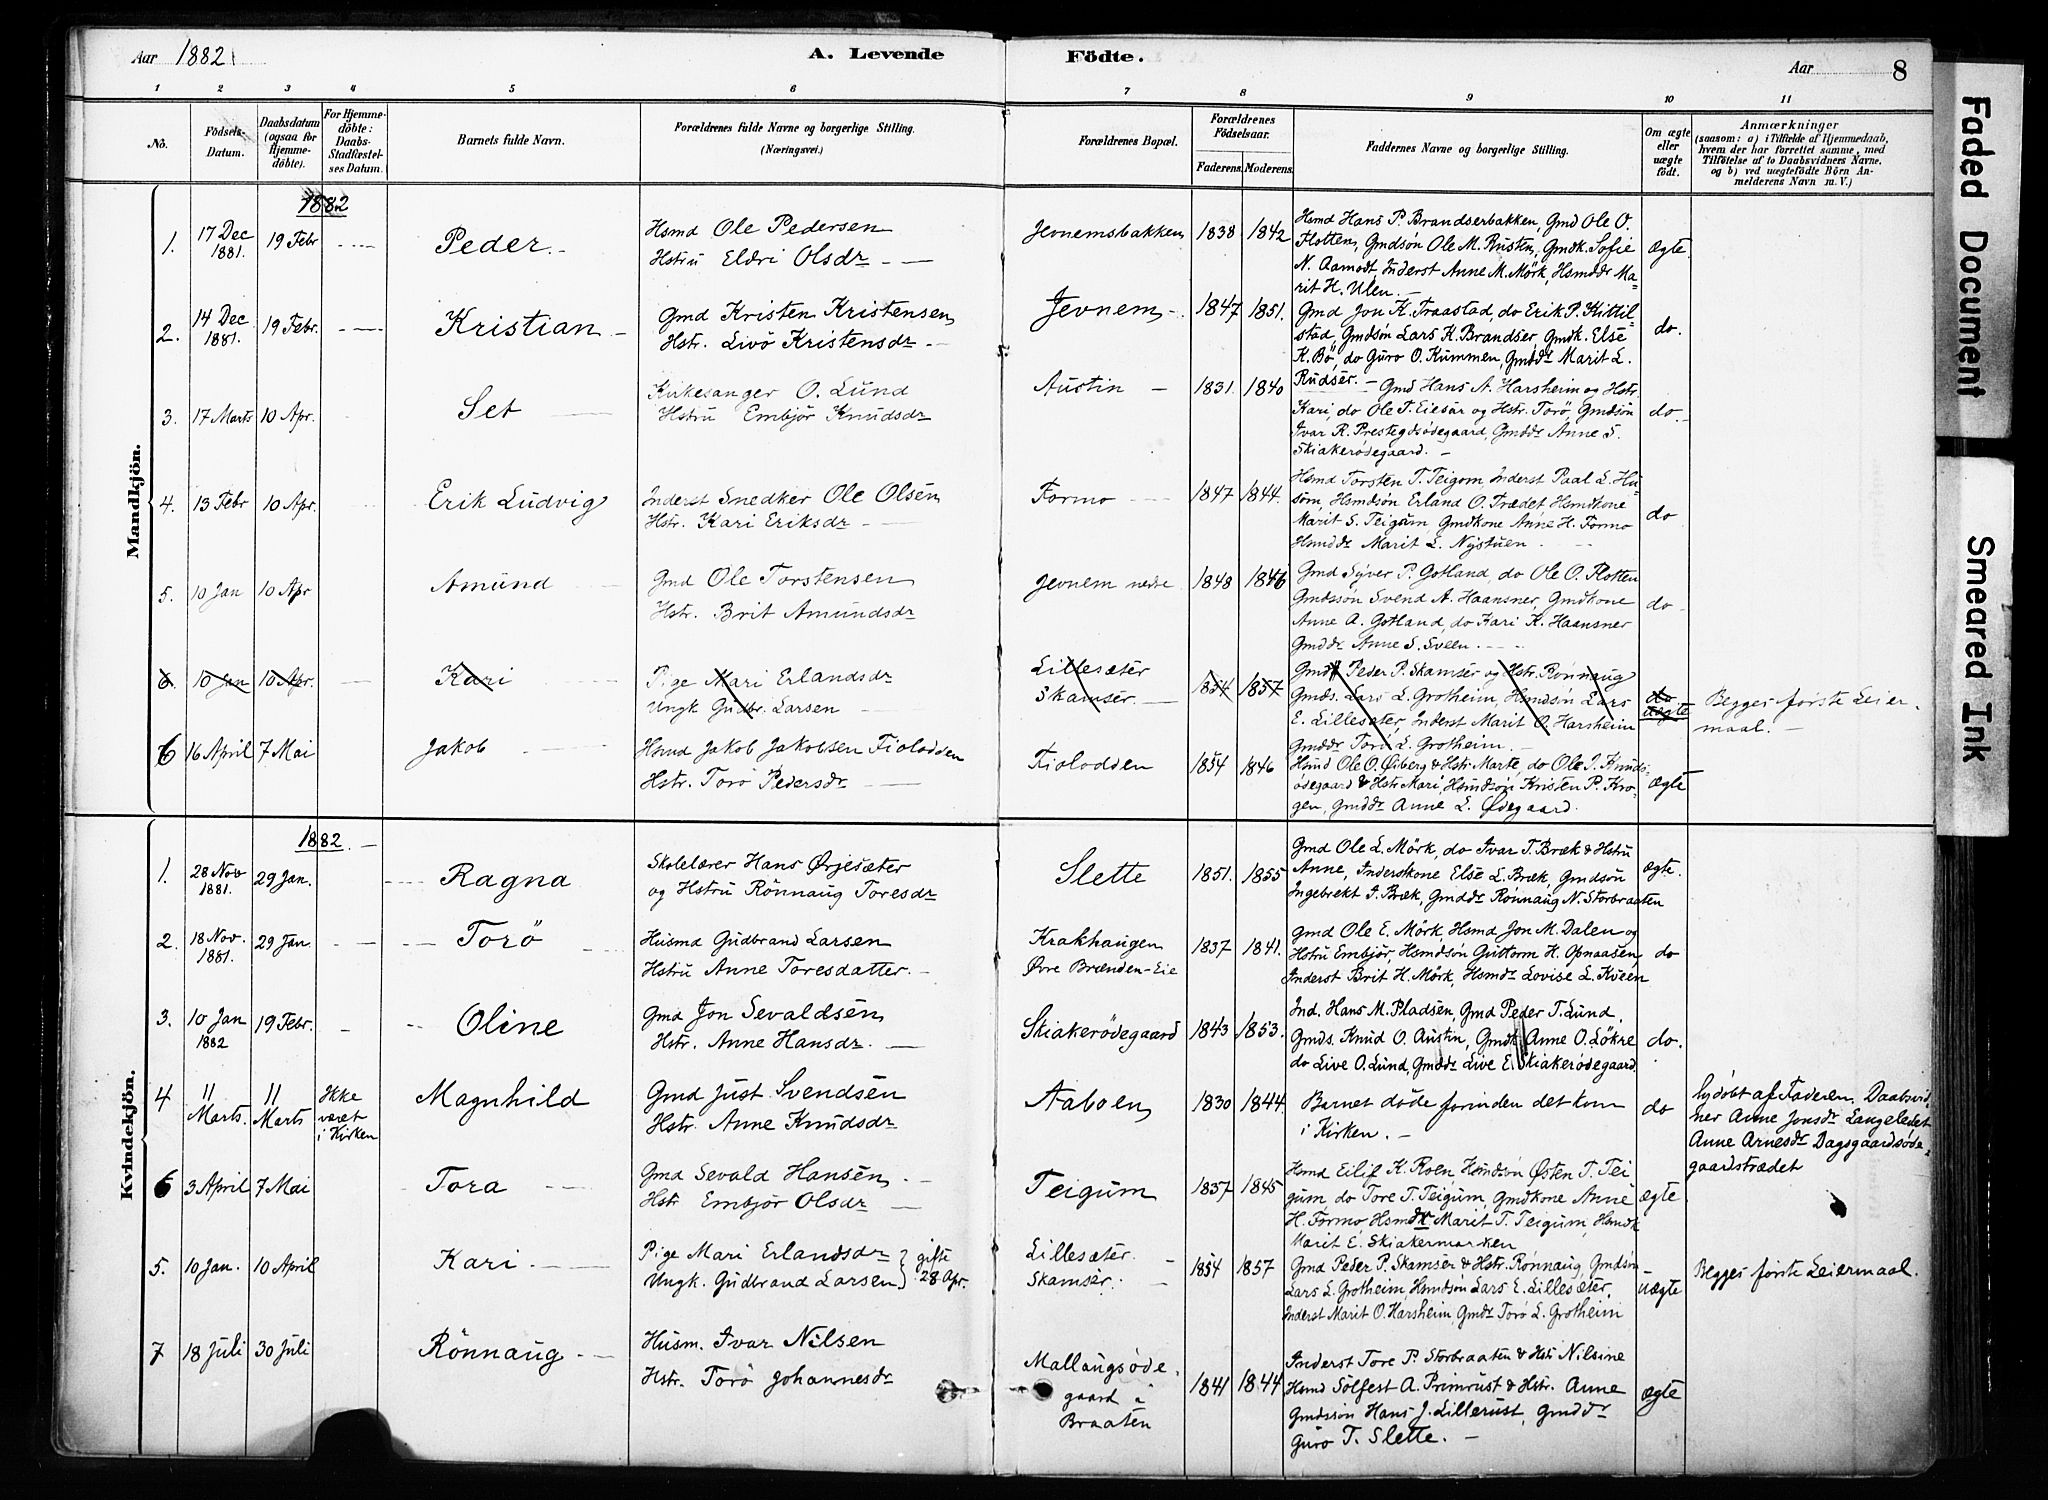 Aar 1882
A. Levende
Födte.
Aar
8
1 2 3 4 5 6 7 8 9 10 11
No.
Födsels-Datum.
Daabsdatum (ogsaa for Hjemmedöbte).
For Hjemmedöbte: Daabs-Stadfæstelses Datum.
Barnets fulde Navn.
Forældrenes fulde Navne og borgerlige Stilling.
(Næringsvei.)
Forældrenes Bopæl.
Forældrenes Födselsaar.
Faderens. Moderens.
Faddernes Navne og borgerlige Stilling.
Om ægte eller uægte födt.
Anmærkninger
(saasom: a) i Tilfælde af Hjemmedaab,
hvem der har forrettet samme, med
Tilföielse af to Daabsvidners Navne.
og b) ved uægtefödte Börn Anmelderens Navn m. V.)
Mandkjön.
1882
1. 17 Dec 1881. 19 Febr
Peder
Hsmd Ole Pedersen
Hstru Eldri Olsdr
Jevnemsbakken 1838 1842
Hsmd Hans P. Brandserbakken, Gmd Ole O.
Flotten, Gmdsøn Ole M. Rusten, Gmdk. Sofie
N. Aamodt, Inderst Anne M. Mörk, Hsmddr Ma-
rit H. Ulen.
ægte
2. 14 Dec 1881. 19 Febr.
Kristian
Gmd Kristen Kristensen
Hstr. Livö Kristensdr
Jevnem 1847 1851.
Gmd Jon K. Traastad, do Erik P. Kittil-
stad, Gmdsøn Lars K. Brandser, Gmdk. Else
K. Bö, do Guro O. Kummen, Gmddr Marit L.
Rudser.
do.
3. 17 Marts 10 Apr.
Set
Kirkesanger O. Lund
Hstru Embjör Knudsdr
Austin 1831. 1840
Gmd Hans A. Harsheim og Hstr.
Kari, do Ole T. Eiesar og Hstr. Torö, Gmdsön
Ivar R. Prestegdsödegaard, Gmddr Anne S.
Skiakerødegaard.
do.
4. 13 Febr 10 Apr.
Erik Ludvig
Inderst Snedker Ole Olsen
Hstr. Kari Eriksdr
Formo 1847 1844.
Hsmd Torsten T. Teigom Inderst Paal L. Hu-
söm, Hsmdsön Erland O. Trædet Hsmdkone
Marit S. Teigum, Gmdkone Anne H. Formo
Hsmddr Marit L. Nystuen
do
5. 10 Jan 10 Apr
Amund
Gmd Ole Torstensen
Hstr. Brit Amundsdr
Jevnem nedre 1848 1846
Gmd Syver P. Gotland, do Ole O. Flotten
Gmdssön Svend A. Haansner, Gmdkone
Anne A. Gotland, do Kari K. Haansner
Gmddr Anne S. Sveen
do
6. 10 Jan 10 Apr.
Kari
Pige Mari Erlandsdr
Ungk Gudbr. Larsen
Lillesæter
Skamser. 1854 1857
Gmd Peder P. Skamser og Hstr. Rönnaug
Gmds. Lars L. Grotheim, Hsmdsön Lars
E. Lillesæter, Inderst Marit O. Harsheim
Gmddr Torö L. Grotheim.
do
uægte
Begges første Leier-
maal.
6 16 April 7 Mai
Jakob
Hsmd Jakob Jakobsen Fiolodden
Hstr. Torö Pedersdr
Fiolodden 1854 1846
Hsmd Ole O. Øiberg & Hstr Marte, do Ole I. Knuds-
ødegaard & Hstr Mari, Hsmdsön Kristen P. Kro-
gen, Gmddr Anne L. Ødegaard.
ægte
Kvindekjön.
1882.
1. 28 Nov 1881. 29 Jan.
Ragna
Skolelærer Hans Ørjesæter
og Hstru Rönnaug Toresdr
Slette 1851. 1855
Gmd Ole L. Mörk, do Ivar T. Bræk & Hstru
Anne, Inderskone Else L. Bræk, Gmdsön
Ingebrekt I. Bræk, Gmddr Rönnaug N. Storbraaten
ægte.
2. 18 Nov. 1881. 29 Jan.
Torö
Husmd Gudbrand Larsen
Hstru Anne Toresdatter.
Krakhaugen
Øvre Brænden-Eie 1837 1841.
Gmd Ole E. Mörk, Hsmd Jon M. Dalen og
Hstru Embjör, Hsmdsön Guttorm H. Opnaasen
Inderst Brit H. Mörk, Hsmdr Lovise L. Kveen
do
3. 10 Jan 1882 19 Febr.
Oline
Gmd Jon Sevaldsen
Hstr. Anne Hansdr.
Skiakerödegaard 1843 1853.
Ind. Hans M. Pladsen, Gmd Peder T. Lund,
Gmds. Knud O. Austin, Gmdk Anne O. Lökre
do Live O. Lund, Gmddr Live E. Skiakerödegaard.
do.
4 11 Marts. 11 Marts
Ikke
været
i Kirken
Magnhild
Gmd Just Svendsen
Hstr. Anne Knudsdr
Aaboen 1830 1844.
Barnet døde forinden det kom
i Kirken.
do
hjdöbt af Faderen. Daabsvid-
ner Anne Jonsdr Langeledet
Anne Arnesdr Dagsgaardsøde-
gaardstrædet
6 3 April 7 Mai
Tora
Gmd Sevald Hansen
Hstr Embjör Olsdr
Teigum 1837 1845
Hsmd Eilif K. Roen, Hsmdsön Østen T. Tei
gum, do Tore T. Teigum, Gmdkone Anne
H. Formo, Hsmdr Marit T. Teigum, Hsmdk
Marit E. Skiakermarken
ægte
5. 10 Jan. 10 April
Kari
Pige Mari Erlandsdr
Ungk. Gudbrand Larsen
gifte
28 Apr.
Lillesæter.
Skamser. 1854 1857
Gmd Peder P. Skamser & Hstr. Rønnaug, Gmdsön
Lars L. Grotheim, Hsmdsön Lars E. Lillesæter,
Inderst Marit O. Harsheim, Gmdr Torö L. Grotheim
uægte
Begges første Leiermaal.
7 18 Juli 30 Juli
Rönnaug
Husm. Ivar Nilsen
Hstr. Torö Johannesdr
Mallaugsøde-
gaard i
Braaten 1841 1844
Inderst Tore P. Storbraaten & Hstr Nilsine
Hsmd Sölfest A. Primrust & Hstr. Anne
Gmdssön Hans J. Lillerust, Gmddr
Guro T. Slette.
ægte
Faded Document
Smeared Ink